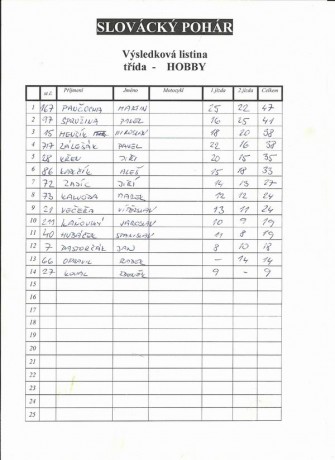 SLOVÁCKÝ POHÁR
Výsledková listina
třída - HOBBY
st.č. Příjmení Jméno Motocykl 1.jízda 2.jízda Celkem
1 167 MARTIN 25 22 47
2 97 SPRUŠINA PAVEL 16 25 41
3 15 MIROSLAV 18 20 38
4 717 ZÁLEŠÁK PAVEL 22 16 38
5 28 KŘEN JIŘÍ 20 15 35
6 86 ALEŠ 15 18 33
7 72 ZADÍC JIŘÍ 14 13 27
8 73 KALUSDA 12 12 24
9 21 VEČEŘA VÍTĚZSLAV 13 11 24
10 211 JAROSLAV 10 9 19
11 40 HUBÁČEK STANISLAV 11 8 19
12 7 JAN 8 10 18
13 66 RADEK - 14 14
14 27 KOVAL ZDENĚK 9 - 9
15
16
17
18
19
20
21
22
23
24
25